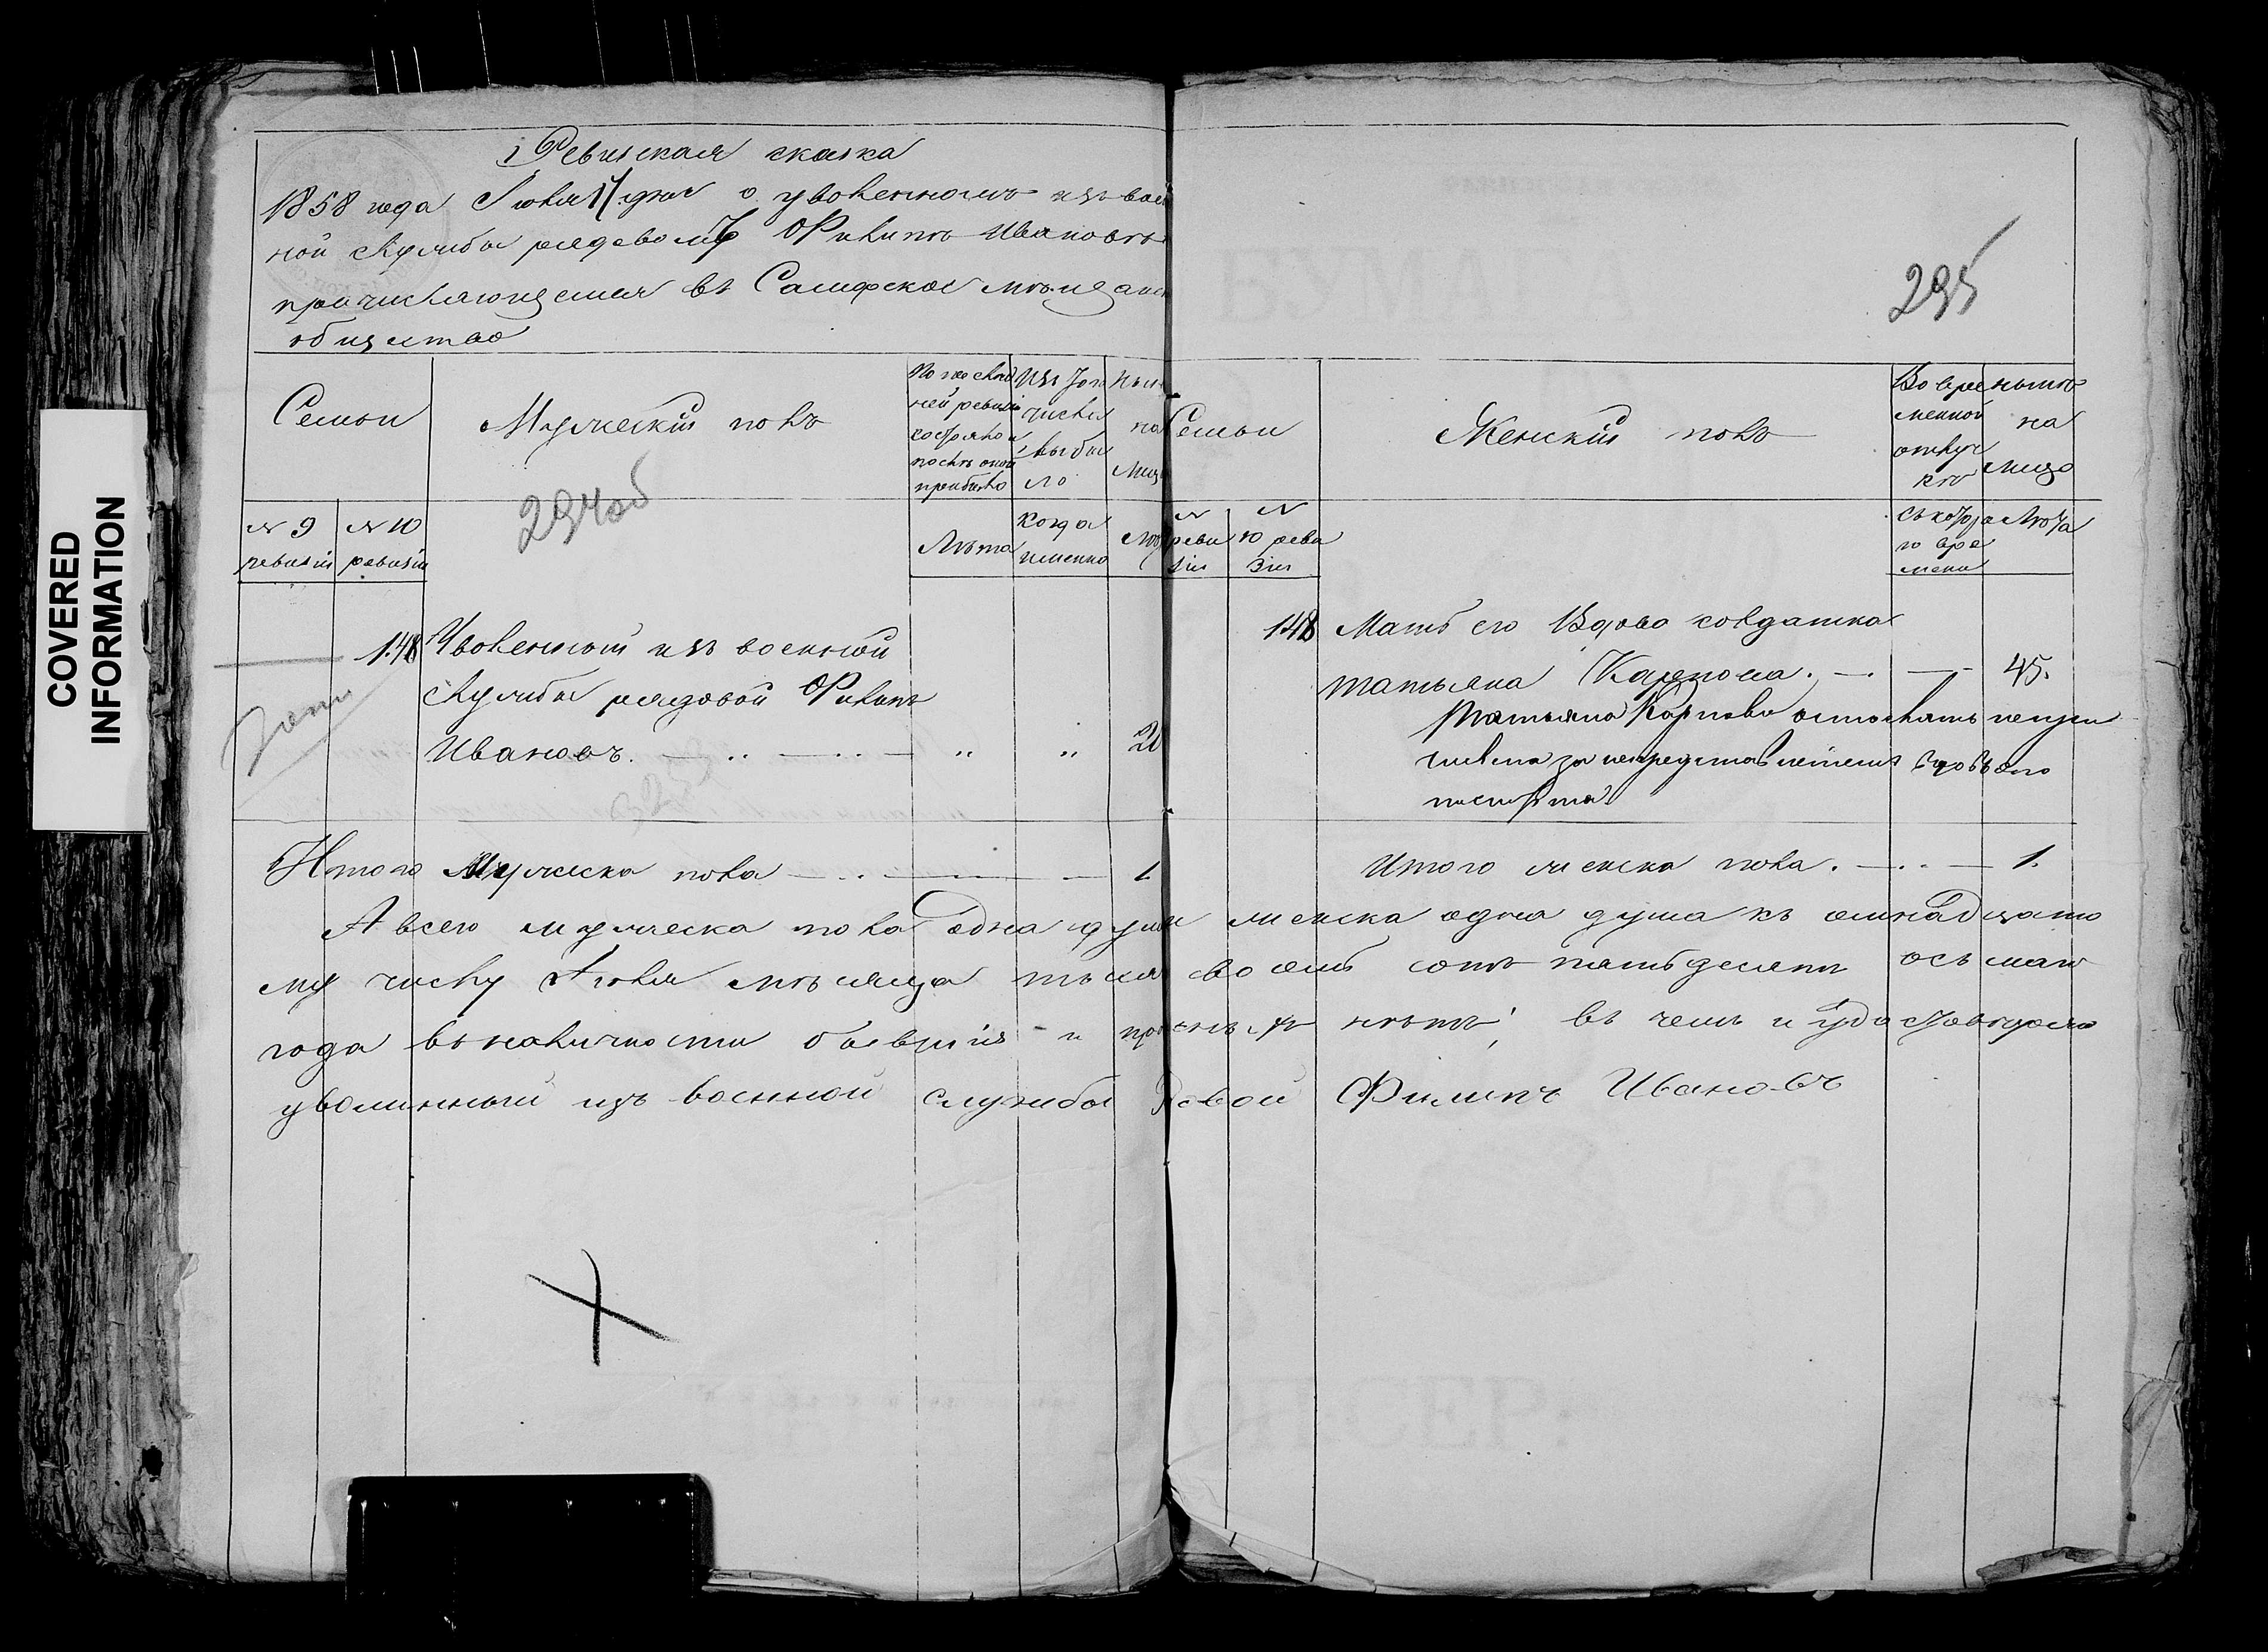 Ревизская сказка
1858 года Июля 17 дня о уволенномъ изъ воен
ной службы рядовомъ Филипѣ Ивановѣ
причисляющемся въ Самарское мѣщанск
общество
295
Семьи
Мужескій полъ
По послѣд
ней ревизіи
состояло и
послѣ оной
прибыло
Изъ того
числа
выбы
ло
Нын
на
лицо
Семьи
Женскій полъ
Во вре
менной
отлуч
кѣ
нынѣ
на
лицо
294 об
№ 9
ревизіи
№ 10
ревизіи
Лѣта
когда
именно
Лѣт
№
реви
зіи
№
10 реви
зіи
Съ котора
го вре
мени
Лѣта
148 Уволенный изъ военной
службы рядовой Филипъ
Ивановъ. — „ — „ — „ „ 20
148 Мать его Вдова солдатка
Татьяна Карпова. — . — 45.
Татьяна Карпова осталась
числена за непредставленіемъ вдовьяго
паспорта
Итого Мужеска пола — 1
Итого женска пола. — . . — 1.
А всего мужеска пола одна душа женска одна душа къ
му числу Июля мѣсяца тысяча восемь сотъ пятьдесятъ осьмаго
года въ наличности и нѣтъ; въ чемъ и
уволинный изъ военной службы Рядовой Филипъ Ивановъ
COVERED
INFORMATION